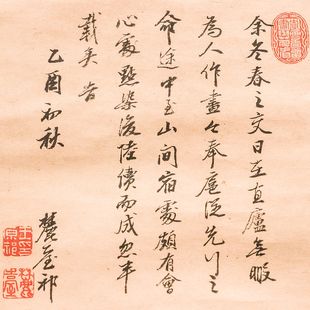 余冬春之交日在直廬無暇
為人作畫今奉扈從先行之
命途中至山間宿處頗有會
心處點染後陸續而成忽半
載矣昔
乙酉初秋
麓臺祁